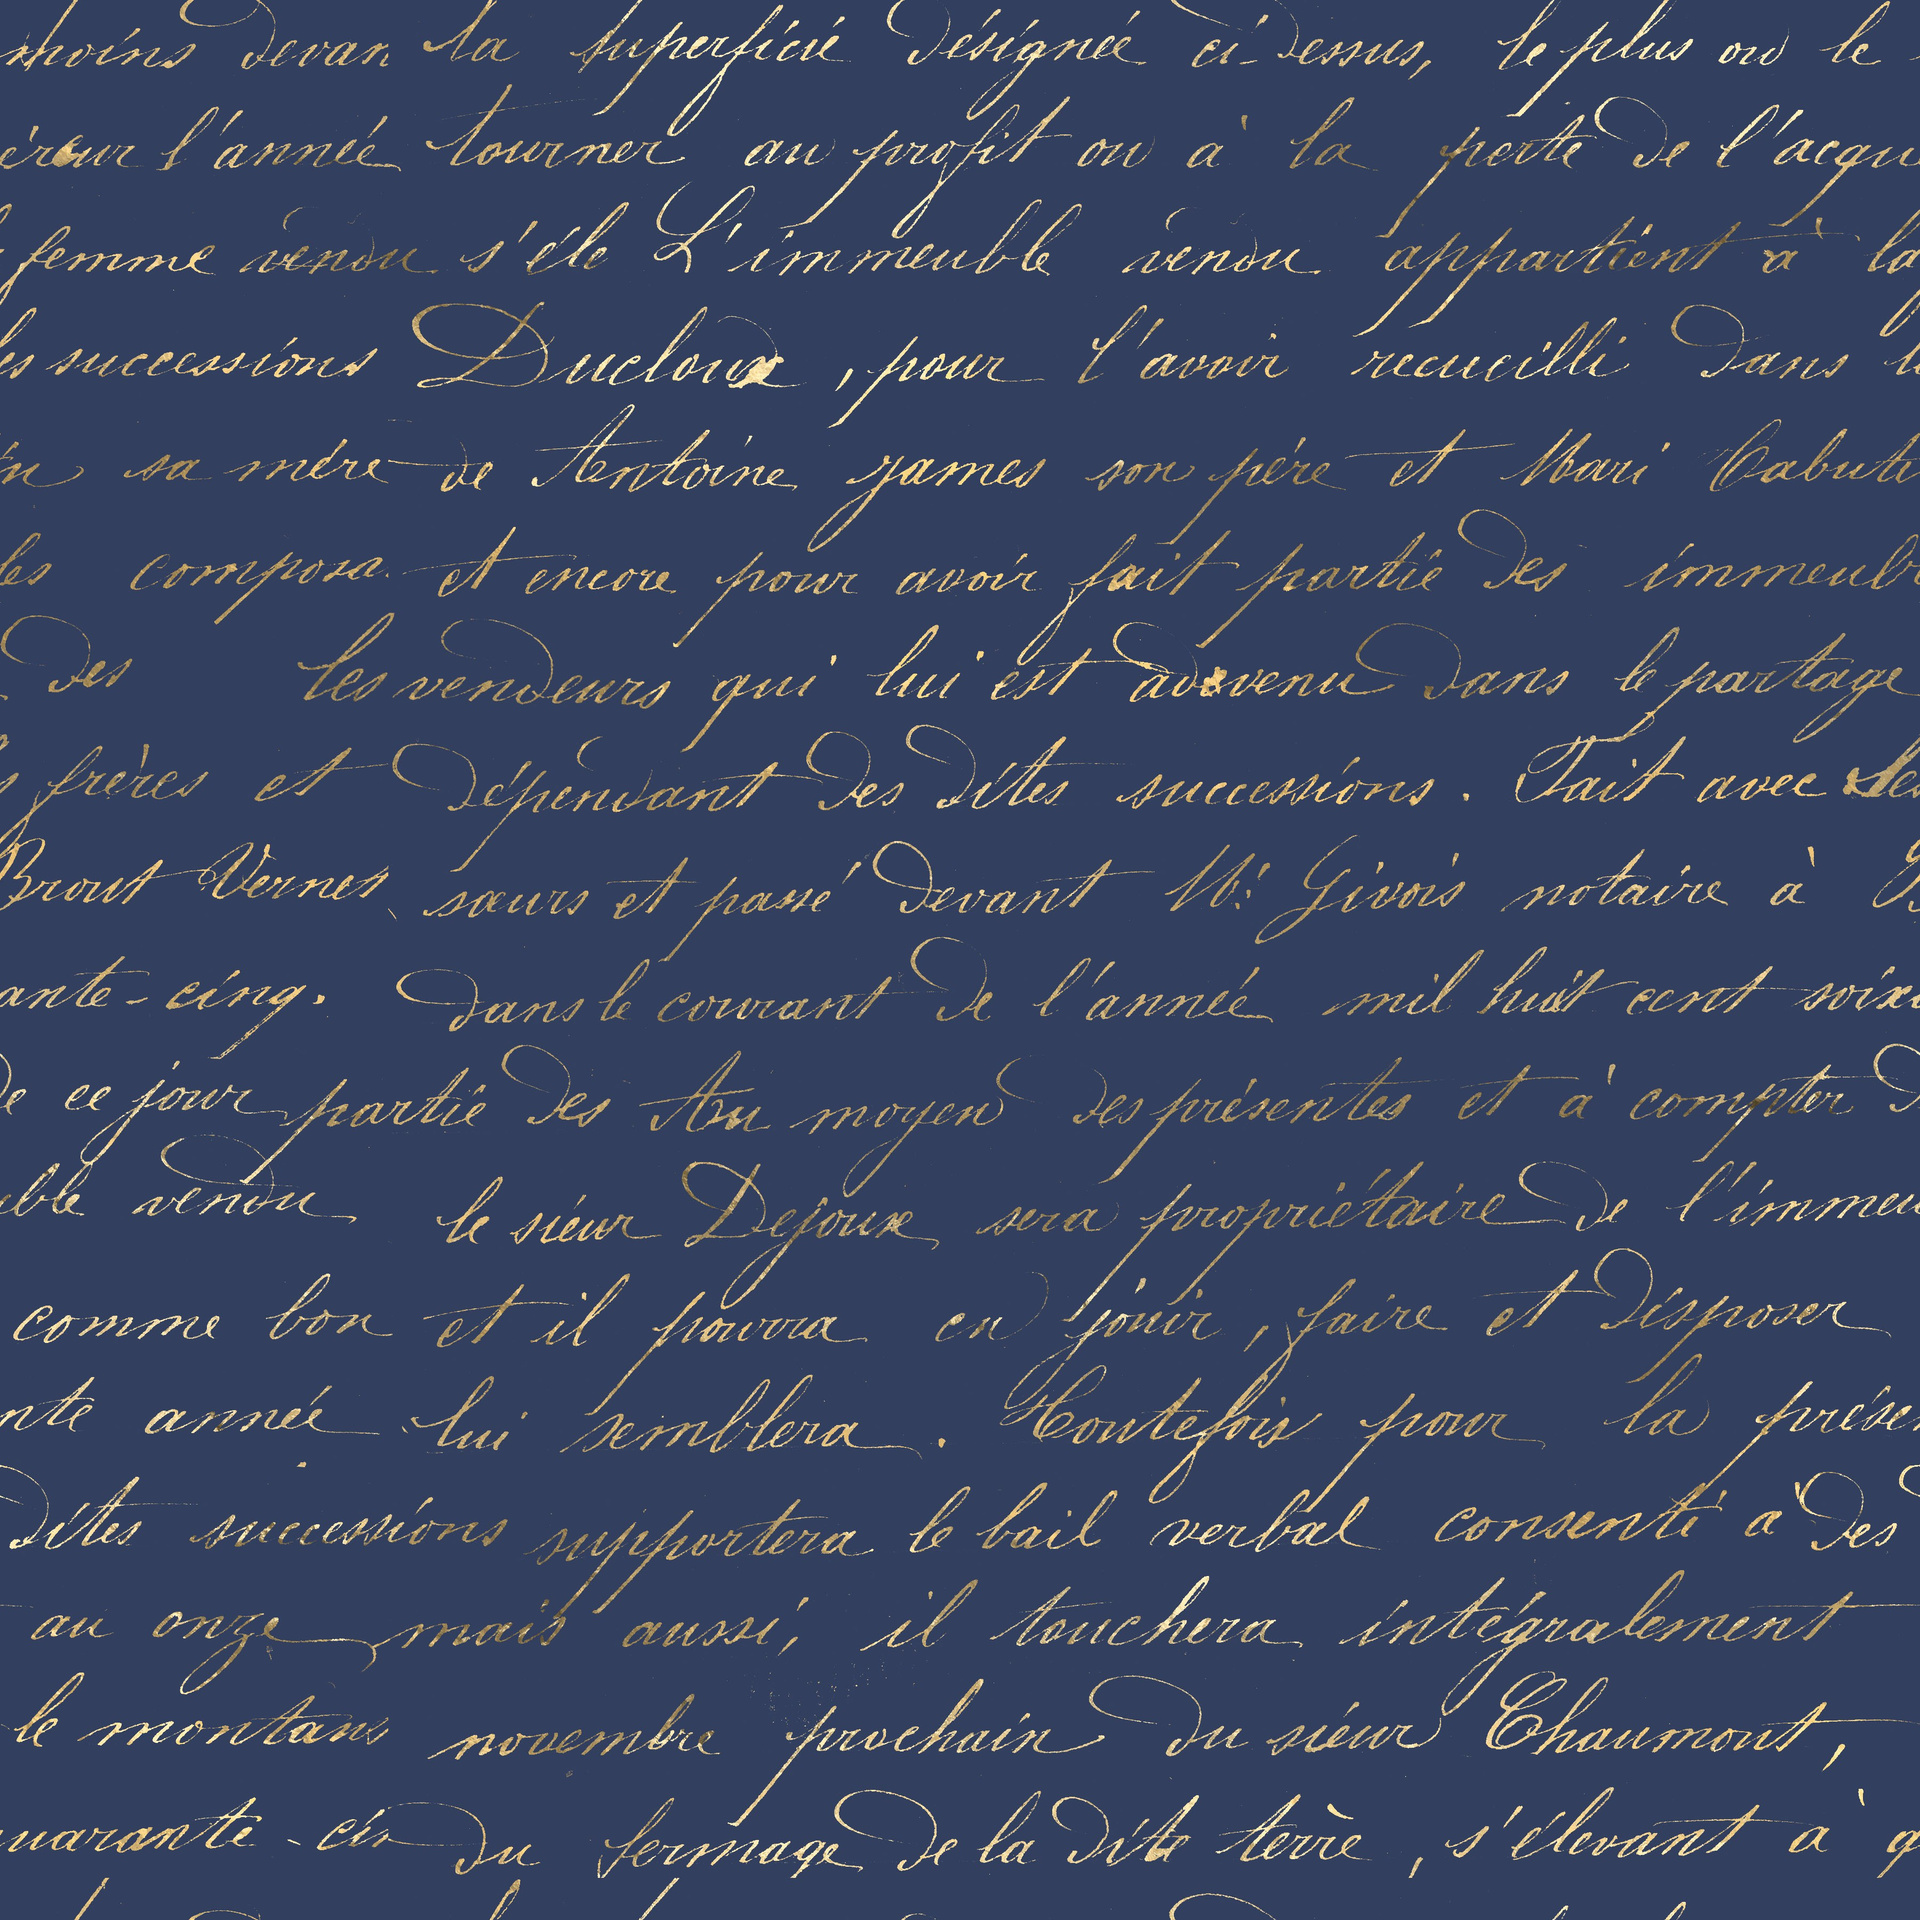 moins devan la superficie désignée ci-dessus, le plus ou le
l'année tourner au profit ou à la perte de l'acqué
femme vendu s'éle L'immeuble vendu appartient à la
les successions Ducloux, pour l'avoir recueilli dans
sa mère de Antoine James son père et Mari Cabut
les composa. et encore pour avoir fait partie des immeub
des les vendeurs qui lui est advenu dans le partage
frères et dépendant des dites successions. Fait avec ses
Brout Vernet sœurs et passé devant Me Givois notaire à
ante-cinq. dans le courant de l'année mil huit cent soix
de ce jour partie des Au moyen des présentes et à compter
ble vendu le sieur Dejoux sera propriétaire de l'immeu
comme bon et il pourra en jouir, faire et disposer
nte année lui semblera. Toutefois pour la présen
dites successions supportera le bail verbal consenti à des
au onze mais aussi, il touchera intégralement
le montans novembre prochain du sieur Chaumont,
uarante-cin du fermage de la dite terre, s'élevant à q